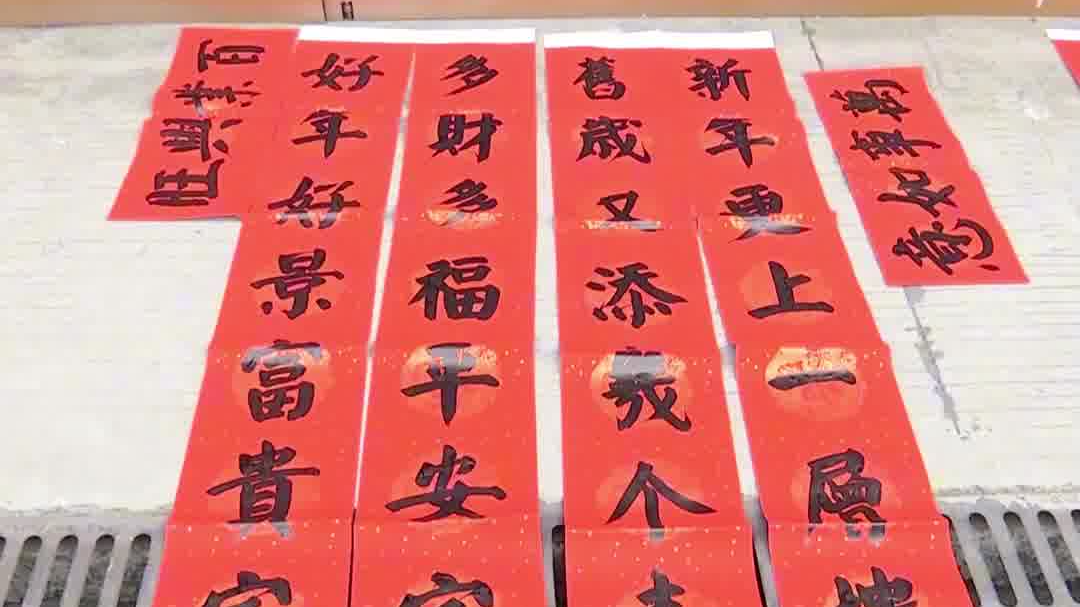 萬事如意
新年更上一層
舊歲又添幾个
多財多福平安
好年好景富貴
百業興旺